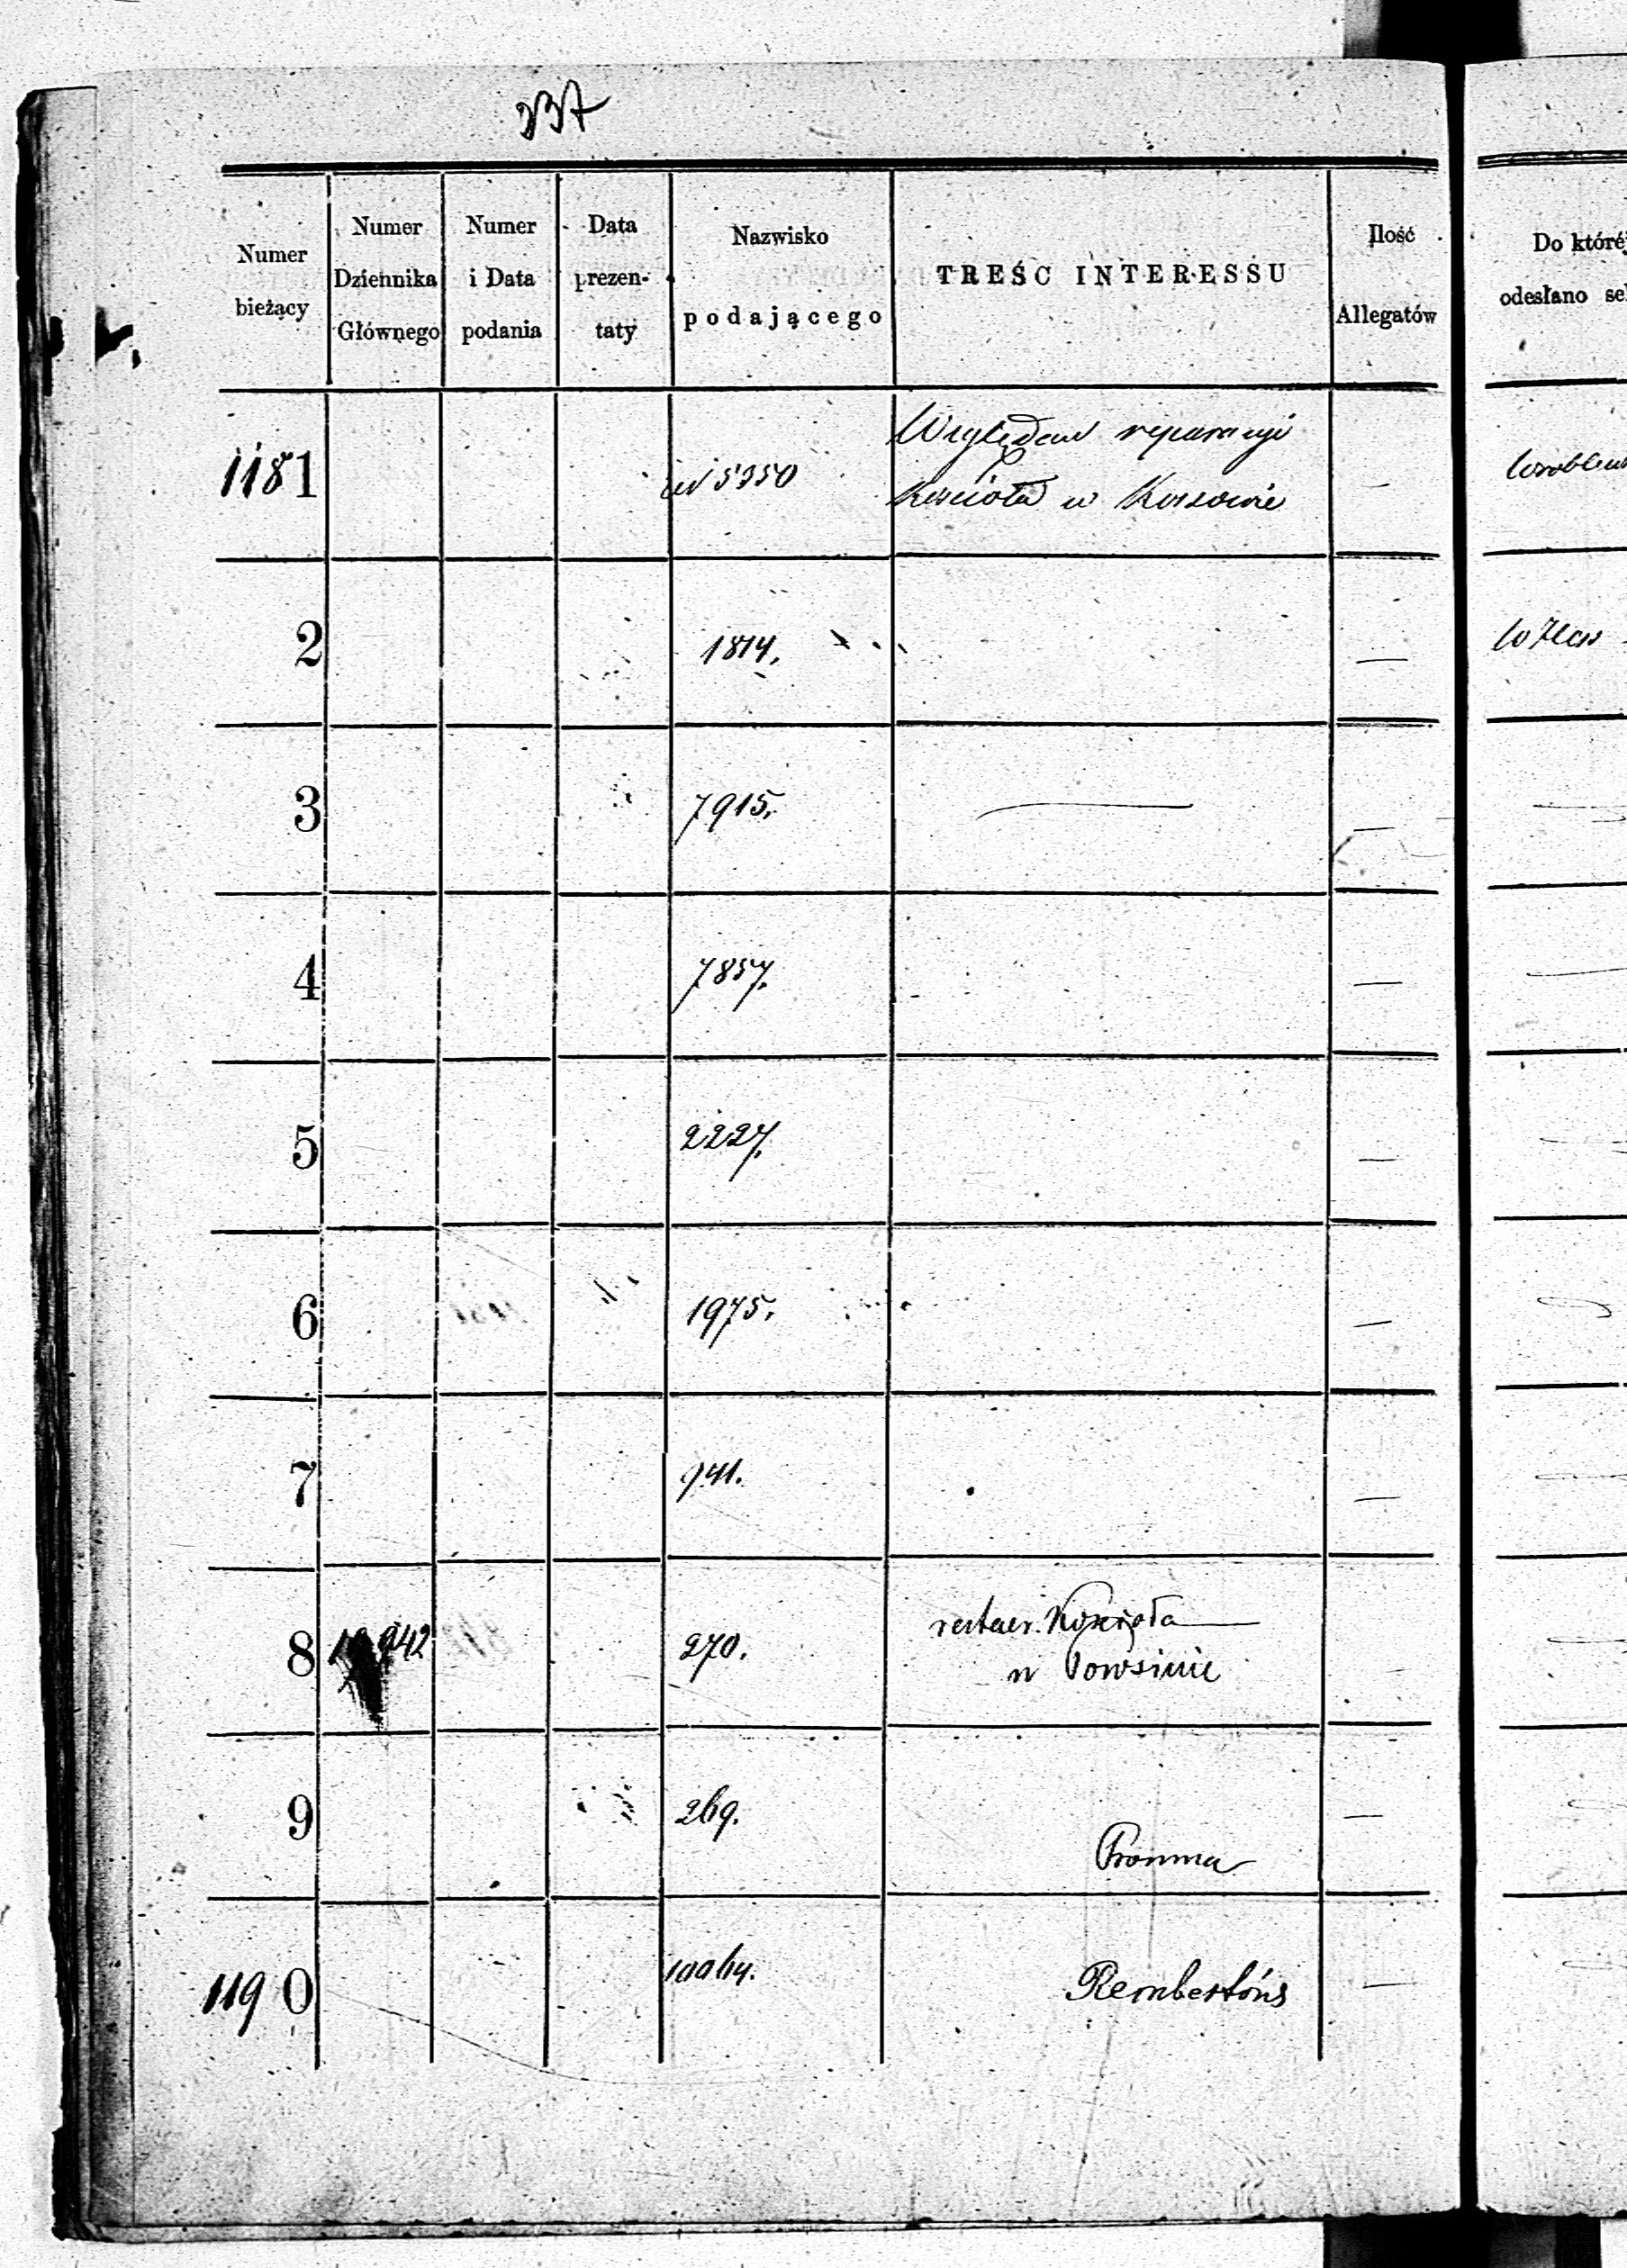 337
Numer bieżący
Numer Dziennika Głównego
Numer i Data podania
Data prezen- taty
Nazwisko podającego
TREŚC INTERESSU
Ilość Allegatów
Do któréj
odesłano
1181 5350 Względem reparacyi
kościoła w
2 1814. —
3 7915. — —
4 7857. —
5 2227. —
6 1975. —
7 941. —
8 942 270. restaur. Kościoła
w Powsinie —
9 269. —
Promna
1190 Rembertów —